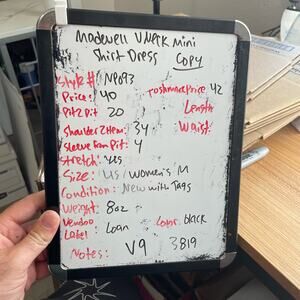 Madewell V Neck Mini
Shirt Dress COPY
Style #: NP093
Price: 40 Poshmark Price 42
Pit2Pit 20 Length
Shoulder2Hem: 34 Waist
Sleeve from Pit: 4
Stretch: yes
Size: US / Women's M
Condition: New with Tags
Weight: 8oz
Vendoo Label Loan Color: black
Notes: V9 3819